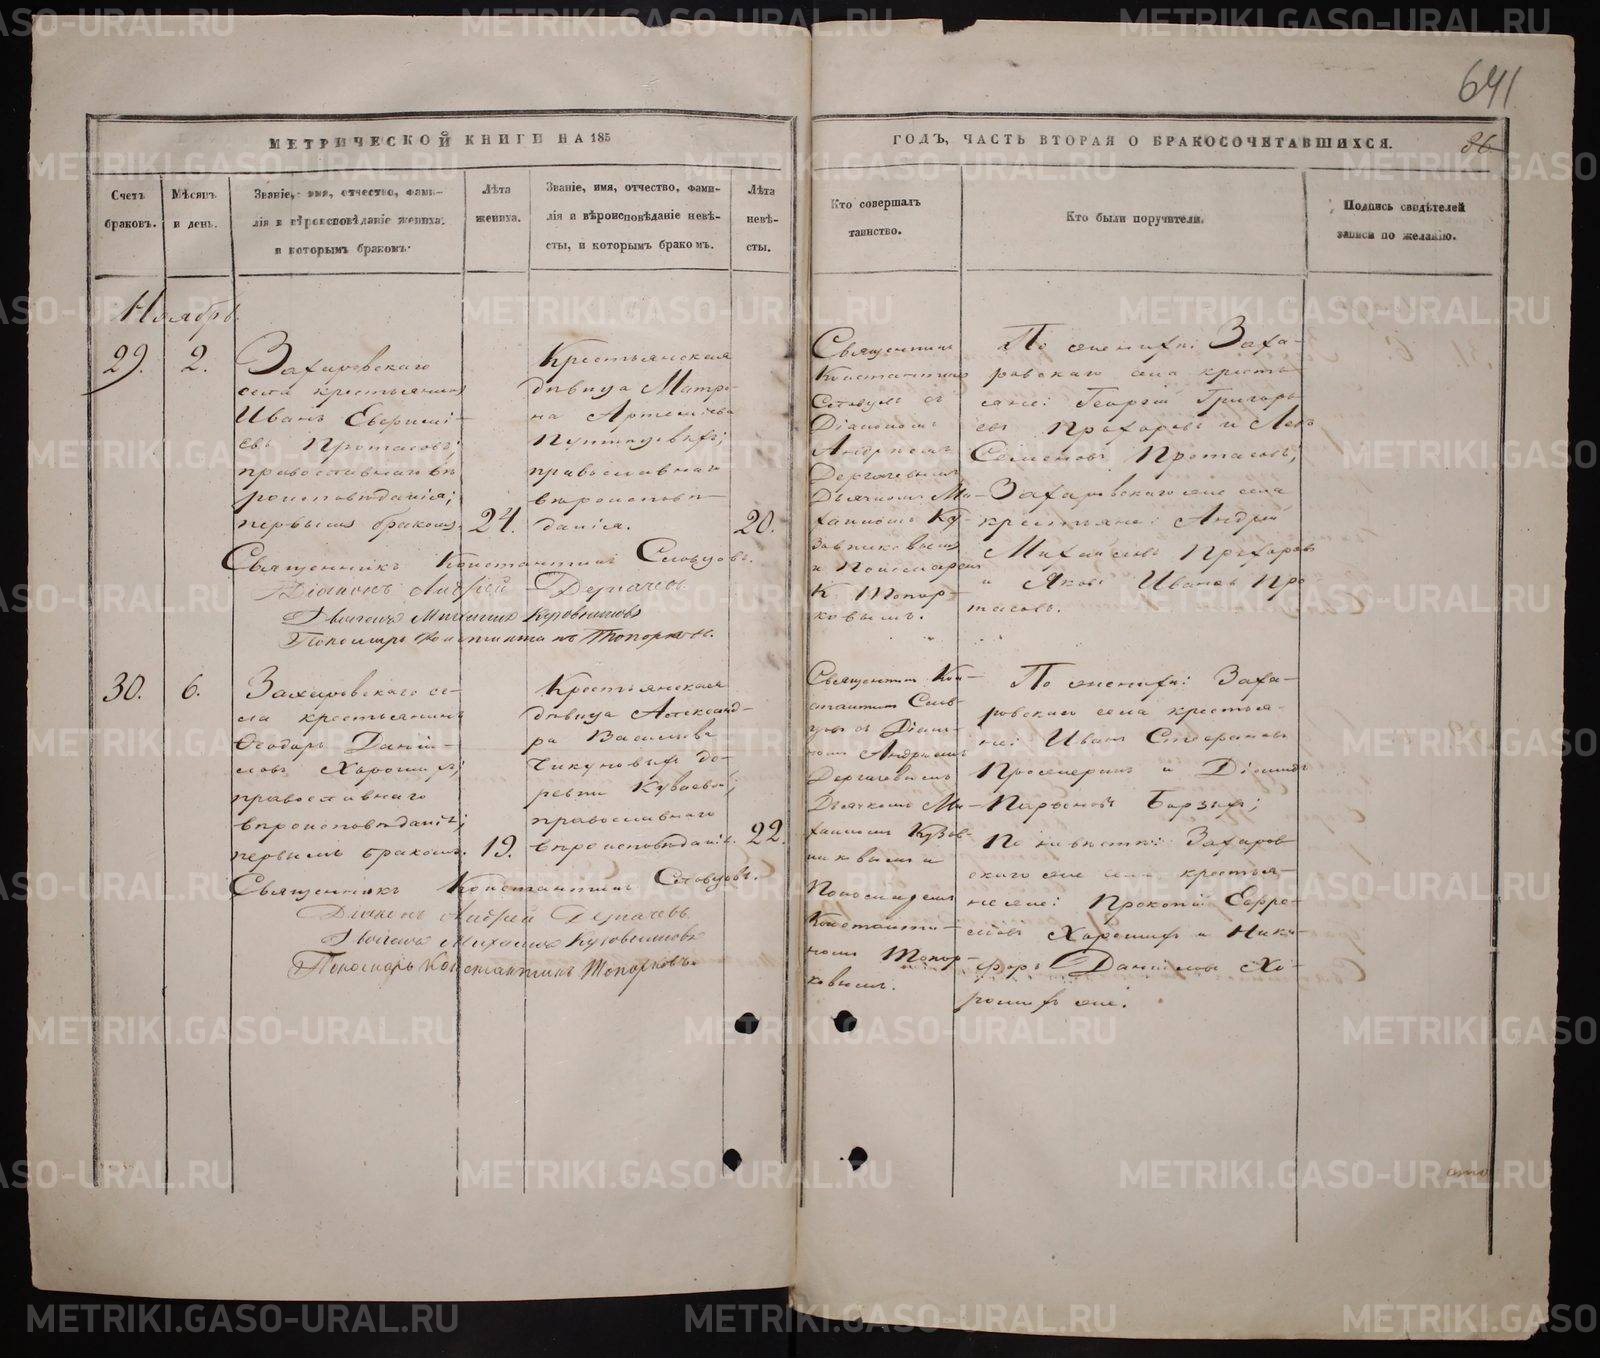 641
МЕТРИЧЕСКОЙ КНИГИ НА 185
ГОДЪ, ЧАСТЬ ВТОРАЯ О БРАКОСОЧЕТАВШИХСЯ.
86
Счетъ браковъ.
Мѣсяцъ и день.
Званіе, имя, отчество, фами-
лія и вѣроисповѣданіе жениха.
и которымъ бракомъ.
Лѣта жениха.
Званіе, имя, отчество, фами-
лія и вѣроисповѣданіе невѣ-
сты, и которымъ бракомъ.
Лѣта невѣ-
сты.
Кто совершалъ
таинство.
Кто были поручители.
Подпись свидѣтелей
записи по желанію.
Ноябрь
29.
2.
Захаровскаго
села крестьянинъ
Иванъ Евфимі-
евъ Протасовъ;
православнаго вѣ
роисповѣданія;
первымъ бракомъ.
24.
Крестьянская
дѣвица Матро-
на Артеміева
православнаго
вѣроисповѣ-
данія.
20.
Священникъ
Константинъ
Словцовъ съ
Діакономъ
Андреемъ
Дергачевымъ
Дьячкомъ Ми-
хаиломъ Ку-
зовниковымъ
и Пономаремъ
К. Топор-
ковымъ.
По женихѣ: Заха-
ровскаго села кресть
яне: Георгій Григорь
евъ Прохоровъ и
Семеновъ Протасовъ;
Захаровскаго же села
крестьяне: Андрей
Михайловъ Прохоровъ
и Яковъ Ивановъ Про
тасовъ.
Священникъ Константинъ Словцовъ.
Діаконъ Андрей Дергачевъ
Дьячекъ Михаилъ Кузовниковъ
Пономарь Константинъ Топорковъ.
30.
6.
Захаровскаго се-
ла крестьянинъ
Ѳеодоръ Даніи-
ловъ Хорошихъ;
православнаго
вѣроисповѣданія;
первымъ бракомъ.
19.
Крестьянская
дѣвица Александ-
ра Васильева
Чикуновыхъ де-
ревни Куваевой;
православнаго
вѣроисповѣданія.
22.
Священникъ Кон-
стантинъ Слов-
цовъ съ Діако-
номъ Андреемъ
Дергачевымъ
Дьячкомъ Ми-
хаиломъ Кузов-
никовымъ и
Пономаремъ
Константи-
номъ Топор-
ковымъ.
По женихѣ: Заха-
ровскаго села крестья-
не: Иванъ Стефановъ
и Діомидъ
Борзыхъ;
По невѣстѣ: Захаров
скаго же села крестья-
не: Прокопій Ефре-
мовъ Хорошихъ и Ники-
форъ Даніиловъ Хо-
рошихъ же.
Священникъ Константинъ Словцовъ.
Діаконъ Андрей Дергачевъ
Дьячекъ Михаилъ Кузовниковъ
Пономарь Константинъ Топорковъ.
METRIKI.GASO-URAL.RU